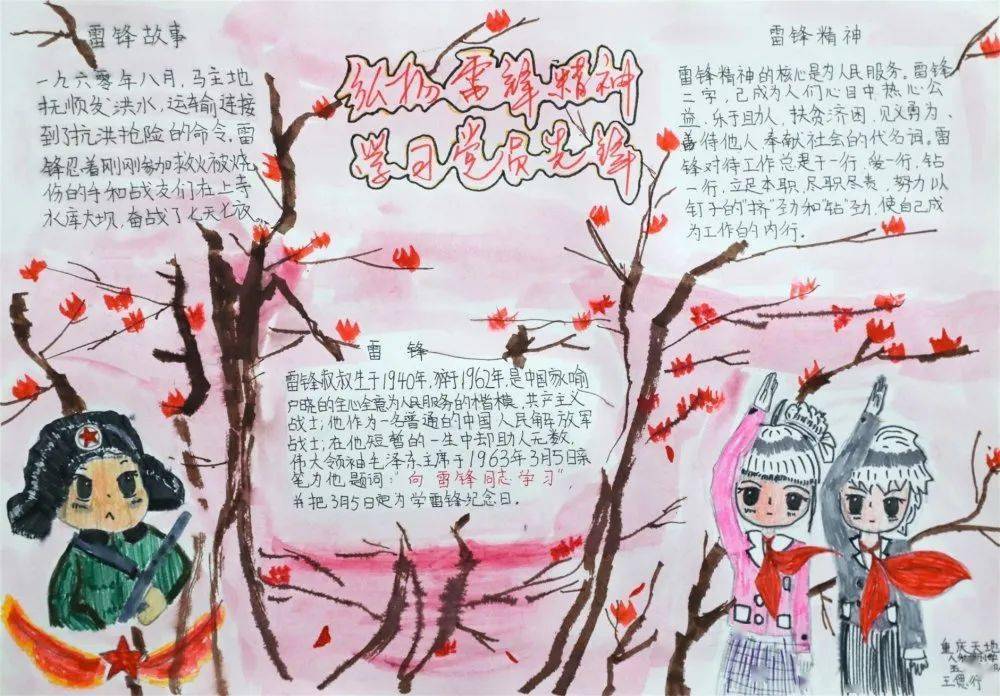 雷锋故事
一九六零年八月，马主地
抚顺发洪水，运输连接
到了抗洪抢险的命令。雷
锋忍着刚刚参加救火被烧
伤的手和战友们在上寺
水库大坝，奋战了七天七夜。
弘扬雷锋精神
学习党员先锋
雷锋精神
雷锋精神的核心是为人民服务。雷锋
二字，已成为人们心目中，热心公
益、乐于助人、扶贫济困、见义勇为、
善待他人，奉献社会的代名词。雷
锋对待工作总是干一行，爱一行，钻
一行，立足本职，尽职尽责，努力以
钉子的“挤”劲和“钻”劲，使自己成
为工作的内行。
雷 锋
雷锋叔叔生于1940年，猝于1962年，是中国家喻
户晓的全心全意为人民服务的楷模，共产主义
战士，他作为一名普通的中国人民解放军
战士，在他短暂的一生中却助人无数。
伟大领袖毛泽东主席于1963年3月5日亲
笔为他题词：“向雷锋同志学习”，
并把3月5日定为学雷锋纪念日。
重庆天地
人和
五
王偲行